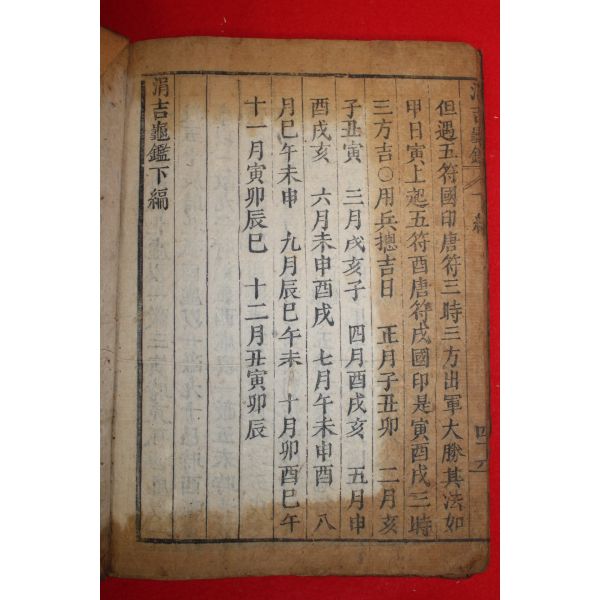 涓吉龜鑑
四十六
但遇五符國印唐符三時三方出軍大勝其法如
甲日寅上起五符酉唐符戌國印是寅酉戌三時
三方吉○用兵摠吉日 正月子丑卯 二月亥
子丑寅 三月戌亥子 四月酉戌亥 五月申
酉戌亥 六月未申酉戌 七月午未申酉 八
月巳午未申 九月辰巳午未 十月卯酉巳午
十一月寅卯辰巳 十二月丑寅卯辰
涓吉龜鑑下編